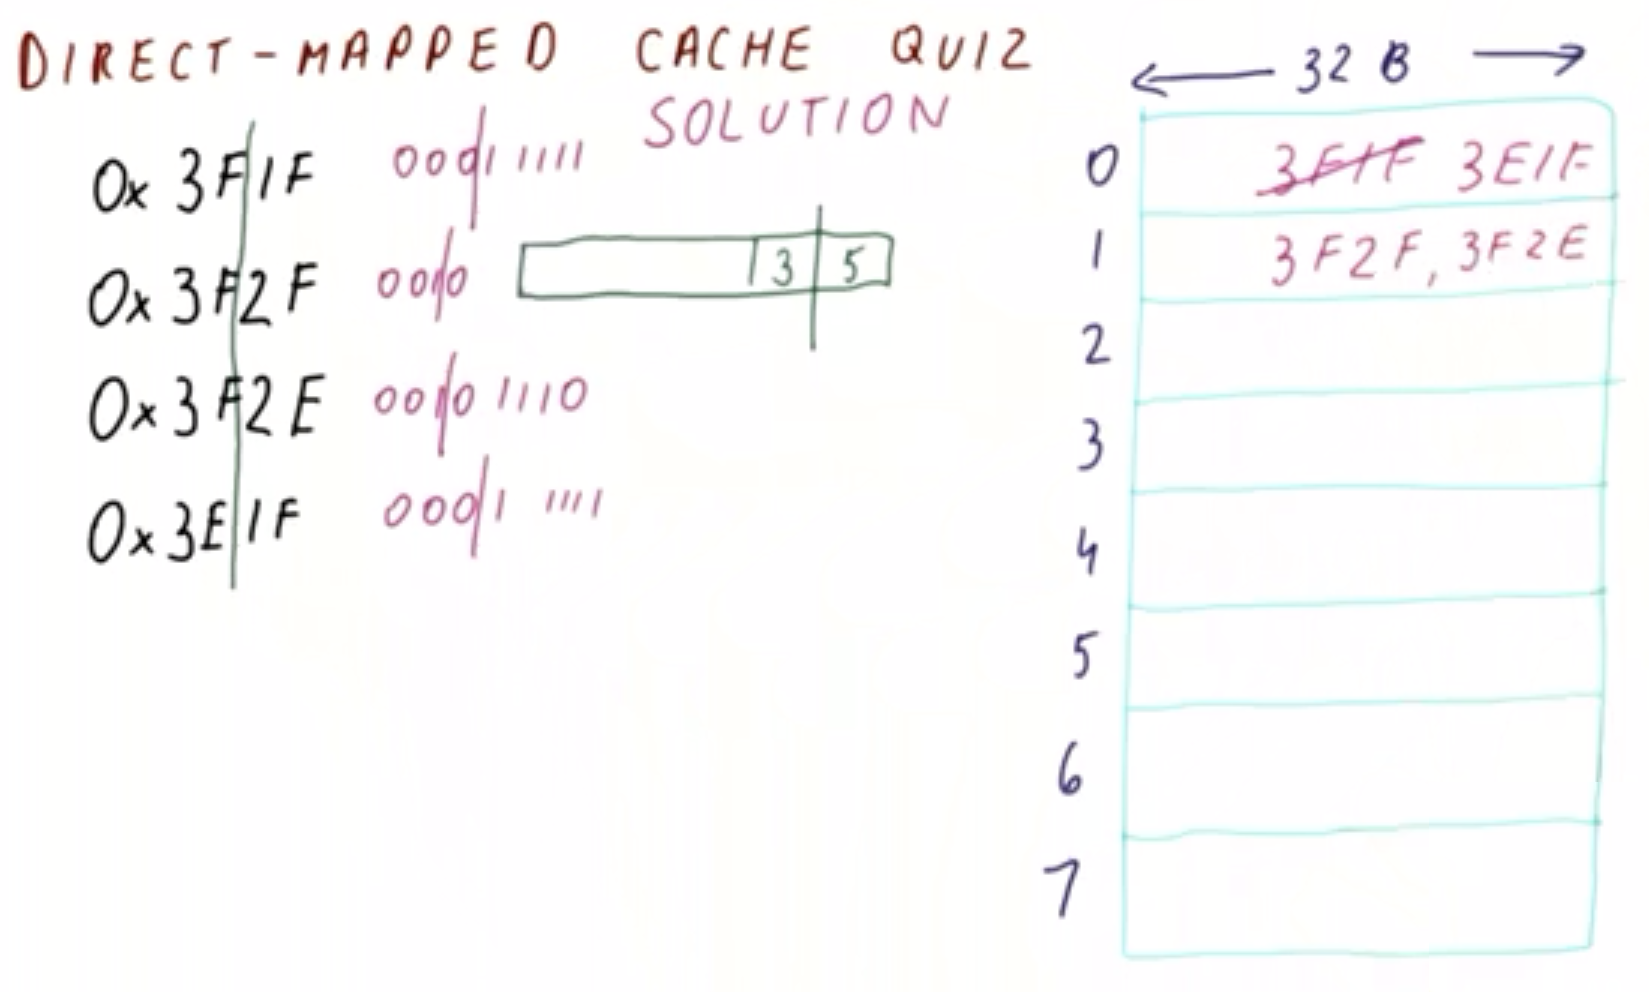 DIRECT-MAPPED CACHE QUIZ
SOLUTION
0x 3F1F 0001 1111
0x 3F2F 0010
0x 3F2E 0010 1110
0x 3E1F 0001 1111
3 5
← 32 B →
0 3F1F 3E1F
1 3F2F, 3F2E
2
3
4
5
6
7